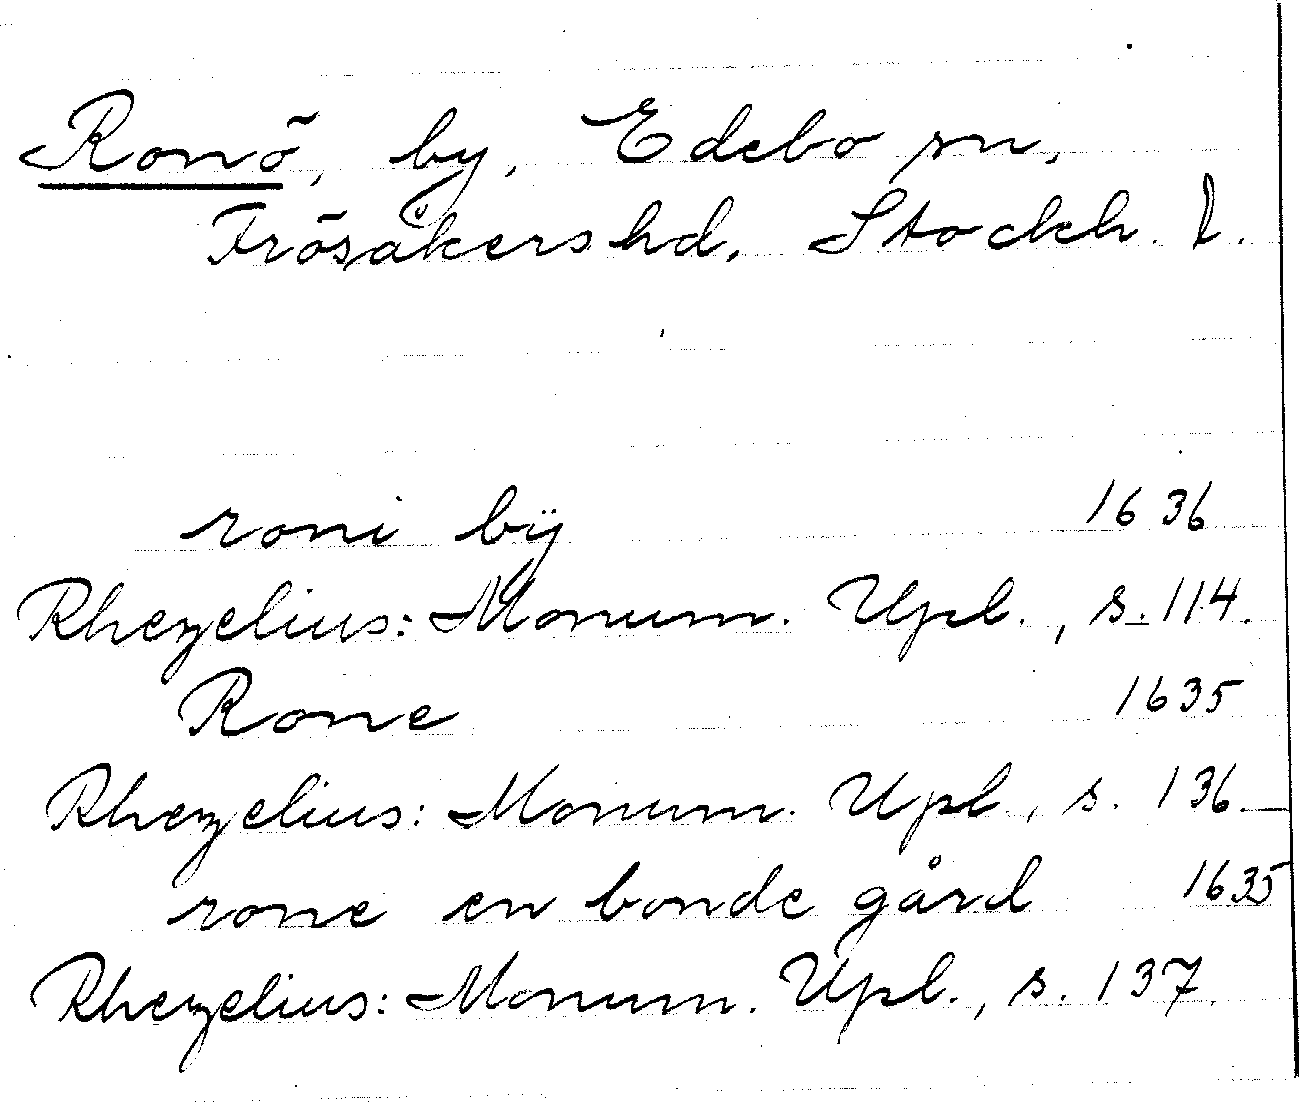 Ronö, by, Edebo sn,
Frösåkers hd, Stockh. l.
roni bÿ 1636
Rhezelius: Monum. Upl., s. 114.
Rone 1635
Rhezelius: Monum. Upl., s. 136
rone en bonde gård 1635
Rhezelius: Monum. Upl., s. 137.